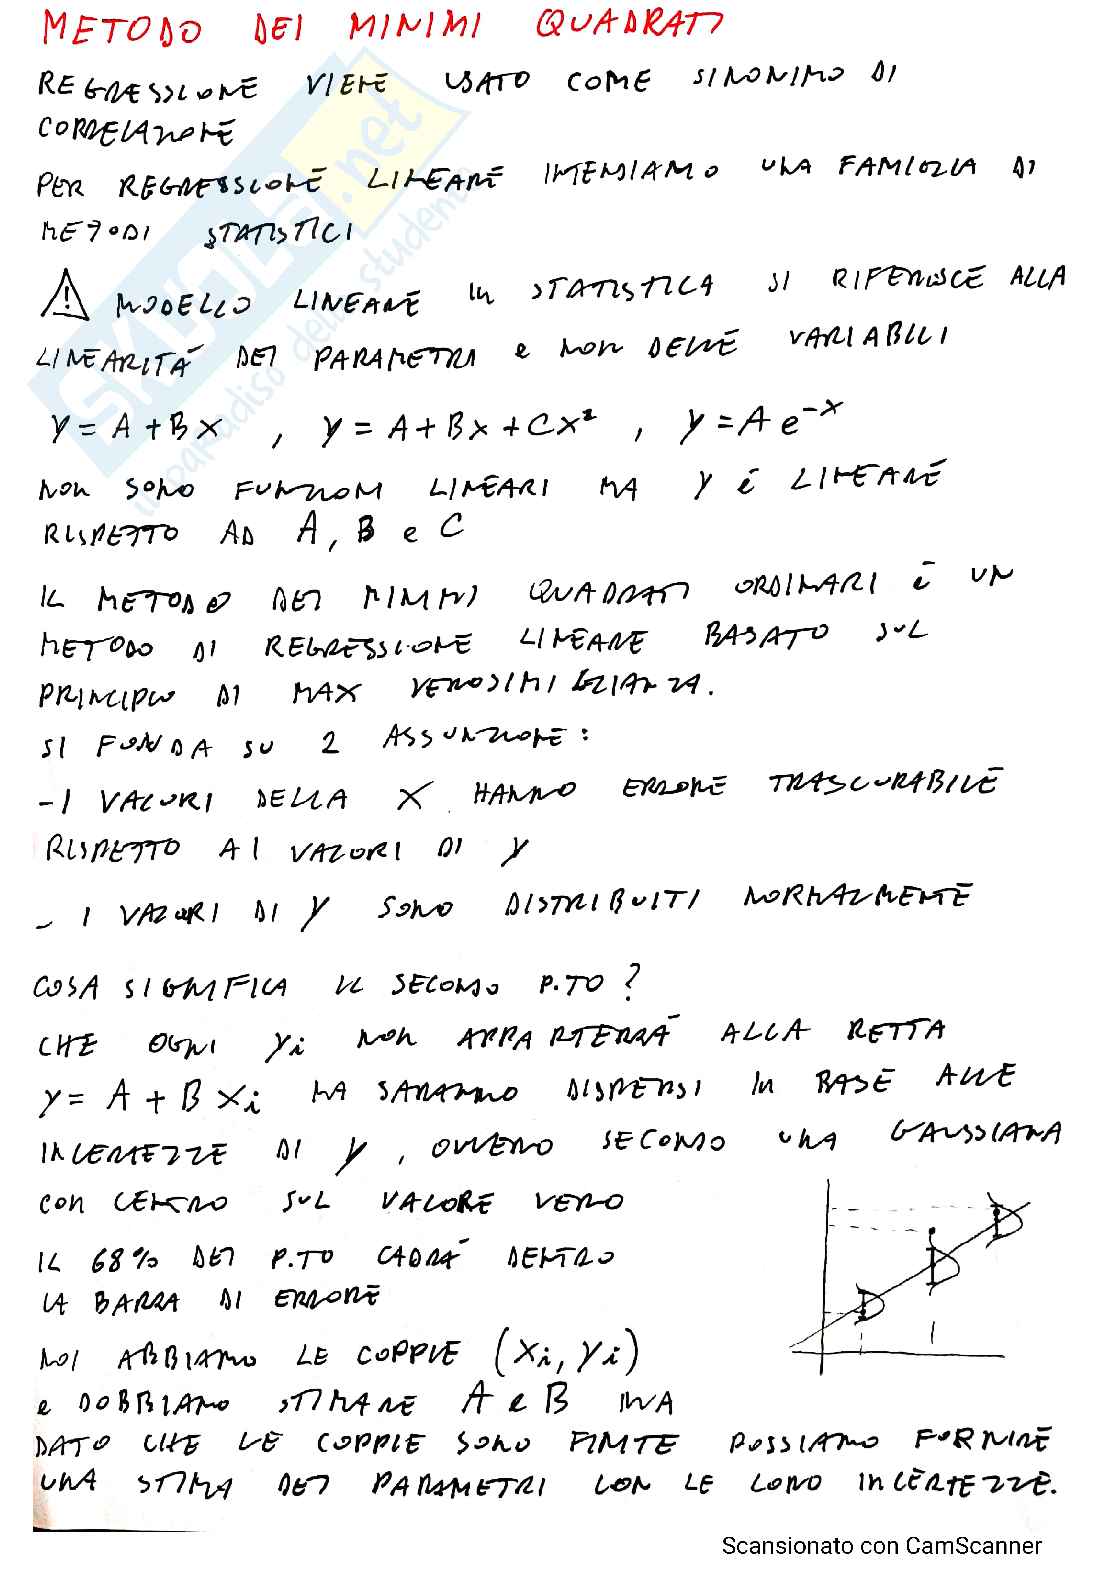 METODO DEI MINIMI QUADRATI
REGRESSIONE VIENE USATO COME SINONIMO DI
CORRELAZIONE
PER REGRESSIONE LINEARE INTENDIAMO UNA FAMIGLIA DI
METODI STATISTICI
⚠ MODELLO LINEARE IN STATISTICA SI RIFERISCE ALLA
LINEARITÀ DEI PARAMETRI e NON DELLE VARIABILI
y = A + Bx , y = A + Bx + Cx² , y = A e^{-x}
NON SONO FUNZIONI LINEARI MA y è LINEARE
RISPETTO AD A, B e C
IL METODO DEI MINIMI QUADRATI ORDINARI è UN
METODO DI REGRESSIONE LINEARE BASATO SUL
PRINCIPIO DI MAX VEROSIMIGLIANZA.
SI FONDA SU 2 ASSUNZIONE:
- I VALORI DELLA X HANNO ERRORE TRASCURABILE
RISPETTO AI VALORI DI y
- I VALORI DI y SONO DISTRIBUITI NORMALMENTE
COSA SIGNIFICA IL SECONDO P.TO?
CHE OGNI yi NON APPARTERRÀ ALLA RETTA
y = A + B xi MA SARANNO DISPERSI IN BASE ALLE
INCERTEZZE DI y, OVVERO SECONDO UNA GAUSSIANA
CON CENTRO SUL VALORE VERO
IL 68% DEI P.TO CADRÀ DENTRO
LA BARRA DI ERRORE
NOI ABBIAMO LE COPPIE (xi, yi)
e DOBBIAMO STIMARE A e B MA
DATO CHE LE COPPIE SONO FINITE POSSIAMO FORNIRE
UNA STIMA DEI PARAMETRI CON LE LORO INCERTEZZE.
SKUOLA.net
il paradiso dello studente
Scansionato con CamScanner